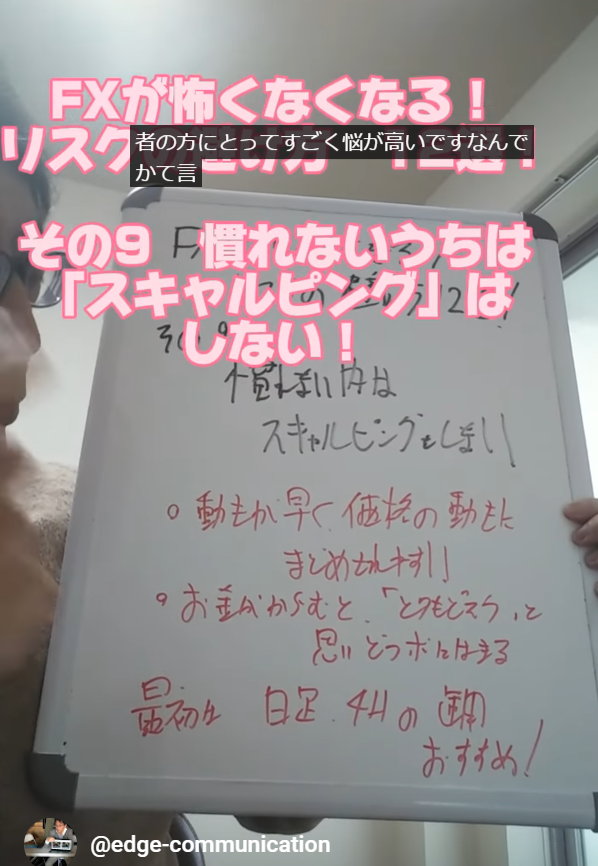 FXが怖くなくなる！
リスク
者の方にとってすごく悩が高いですなんで
かて言
その9 慣れないうちは
「スキャルピング」は
しない！
その9
慣れない内は
スキャルピングをしない
○ 動きが早く、価格の動きに
○ お金がからむと、「とりもどそう」と
思いどつボにはまる
最初は 日足、4Hの運用
おすすめ!
@edge-communication